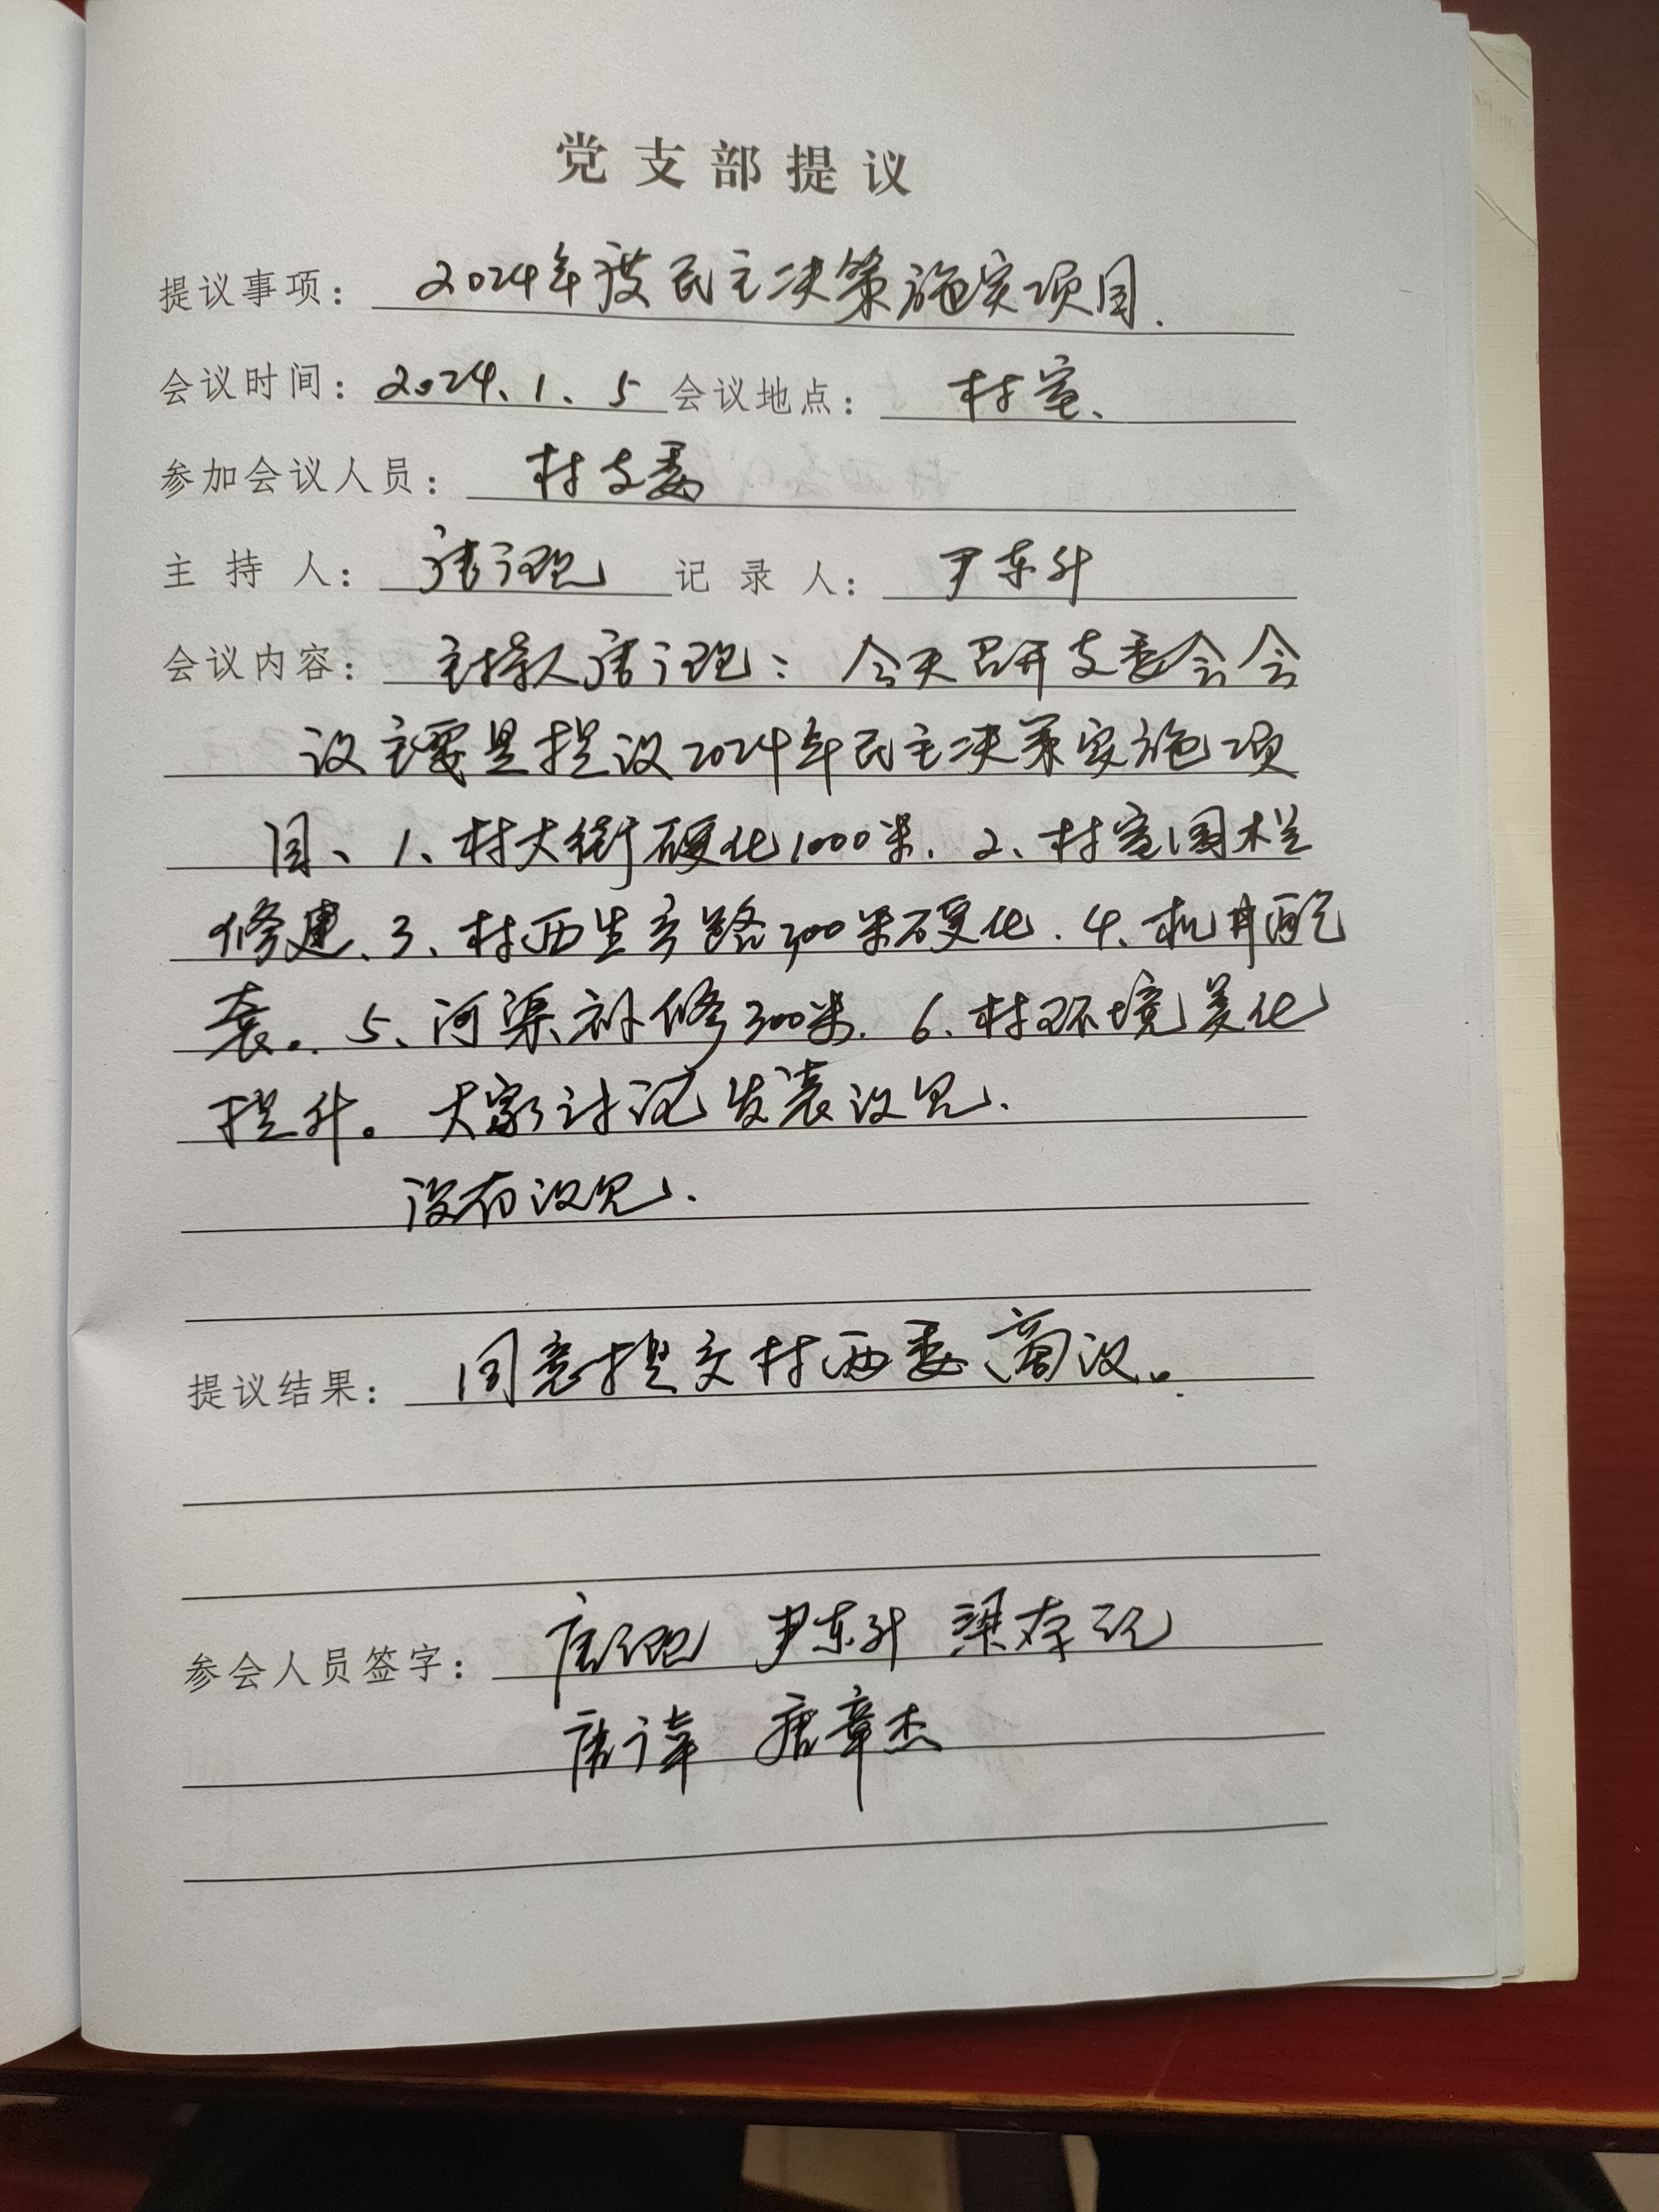 党支部提议
提议事项：2024年度民主决策施实项目.
会议时间：2024、1、5 会议地点：村室、
参加会议人员：村支委
主持人： 记录人：尹东升
会议内容：主持人 ：今天召开支委会会
议主要是提议2024年民主决策实施项
目、1、村大街硬化1000米. 2、村室围栏
修建、3、村西生产路300米硬化. 4、机井配
套。5、河渠补修300米. 6、村环境美化
提升。大家讨论发表议见.
没有议见.
提议结果：同意提交村两委商议。
参会人员签字： 尹东升
唐章杰